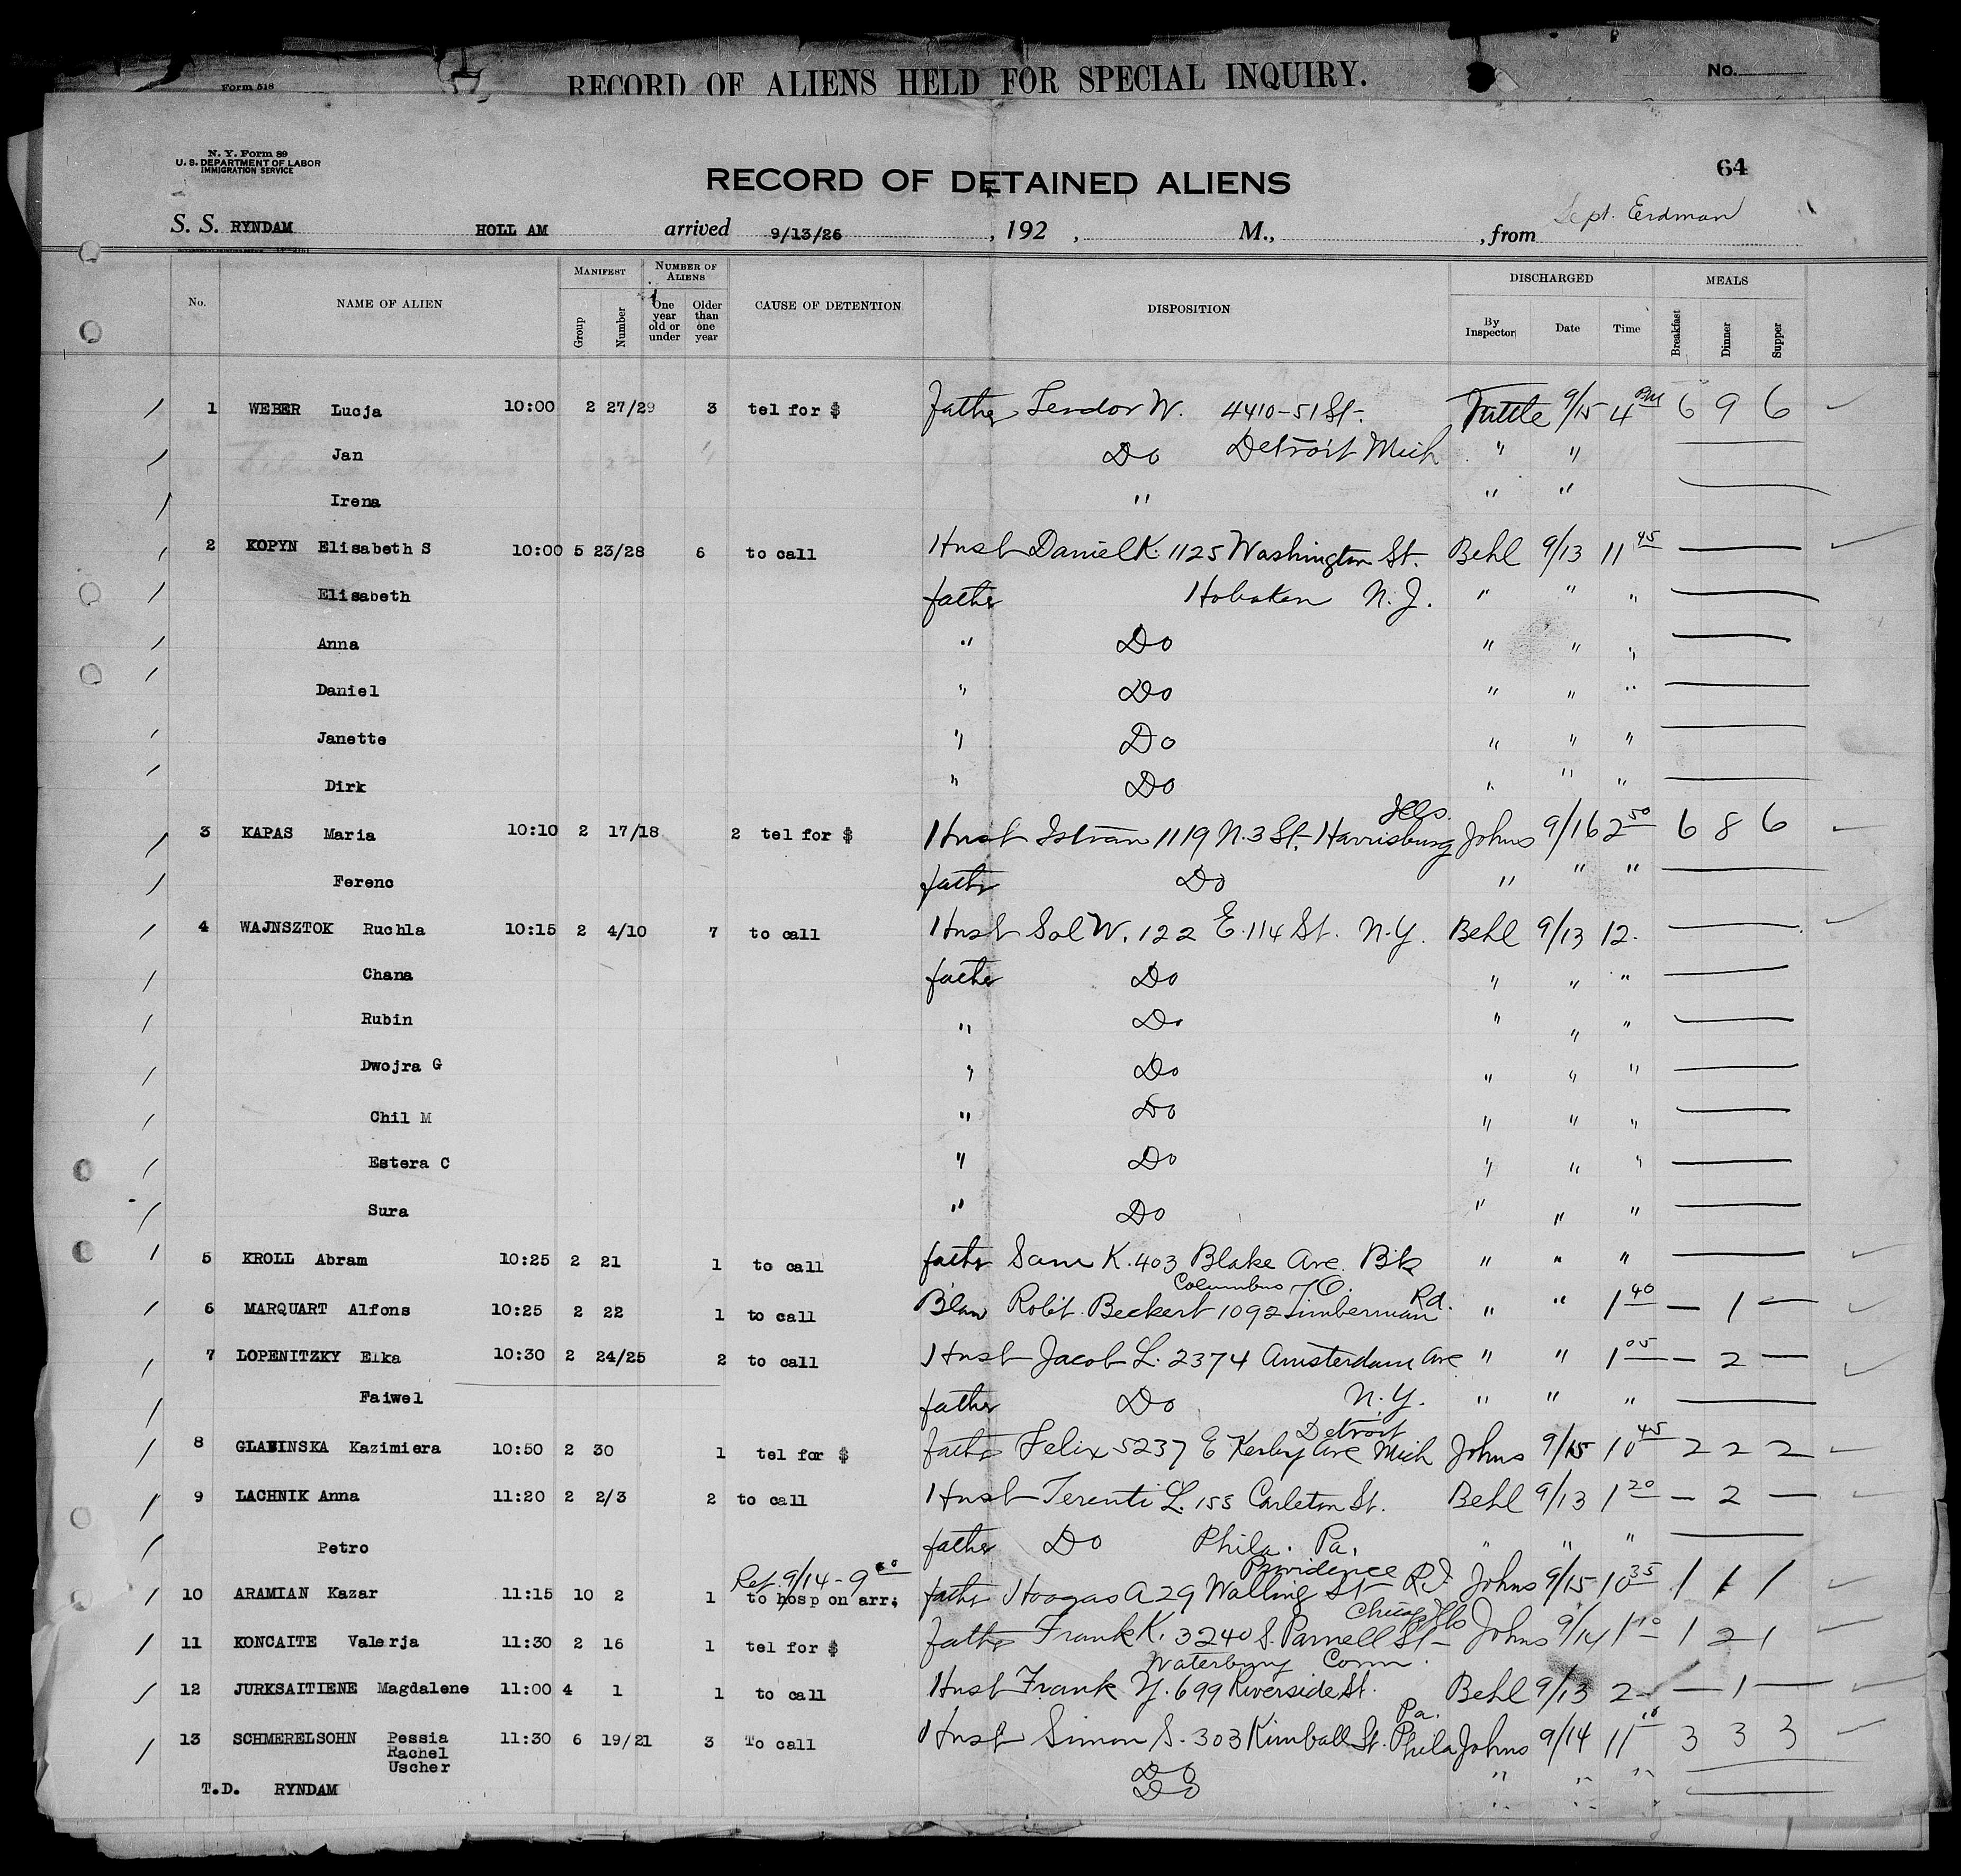 Form 518
RECORD OF ALIENS HELD FOR SPECIAL INQUIRY.
No.
N. Y. Form 89
U. S. DEPARTMENT OF LABOR
IMMIGRATION SERVICE
64
RECORD OF DETAINED ALIENS
S. S. RYNDAM HOLL AM arrived 9/13/26, 192 , M., , from Sept. Erdman
No. NAME OF ALIEN MANIFEST Group Number NUMBER OF ALIENS One year old or under Older than one year CAUSE OF DETENTION DISPOSITION DISCHARGED By Inspector Date Time MEALS Breakfast Dinner Supper
1 WEBER Lucja 10:00 2 27/29 3 tel for $ father W. 4410-51 St. Tuttle 9/15 4 PM 6 9 6
Jan Do Detroit Mich " "
Irena " " "
2 KOPYN Elisabeth S 10:00 5 23/28 6 to call Husb Daniel K. 1125 Washington St. Behl 9/13 11 45
Elisabeth father Hoboken N. J. " " "
Anna " Do " " "
Daniel " Do " " "
Janette " Do " " "
Dirk " Do " " "
3 KAPAS Maria 10:10 2 17/18 2 tel for $ Husb Istvan 1119 N. 3 St. Harrisburg Johns 9/16 2 50 6 8 6
Ferenc father Do " " "
4 WAJNSZTOK Ruchla 10:15 2 4/10 7 to call Husb Sol W. 122 E. 114 St. N.Y. Behl 9/13 12.
Chana father Do " " "
Rubin " Do " " "
Dwojra G " Do " " "
Chil M " Do " " "
Estera C " Do " " "
Sura " Do " " "
5 KROLL Abram 10:25 2 21 1 to call father Sam K. 403 Blake Ave. Bk " " "
Columbus O.
6 MARQUART Alfons 10:25 2 22 1 to call Robt. Beckert 1092 Timberman Rd. " " 1 40 — 1 —
7 LOPENITZKY Elka 10:30 2 24/25 2 to call Husb Jacob L. 2374 Amsterdam Ave " " 1 05 — 2 —
Faiwel father Do N.Y. " " "
Detroit
8 GLABINSKA Kazimiera 10:50 2 30 1 tel for $ father Felix 5237 E Kerby Ave Mich Johns 9/15 10 45 2 2 2
9 LACHNIK Anna 11:20 2 2/3 2 to call Husb Terenti L. 155 Carleton St. Behl 9/13 1 20 — 2 —
Petro father Do Phila. Pa. " " "
Ret. 9/14 - 9 Providence
10 ARAMIAN Kazar 11:15 10 2 1 to hosp on arr. father A 29 Walling St R I Johns 9/15 10 35 1 1 1
Chicago Ills
11 KONCAITE Valerja 11:30 2 16 1 tel for $ father Frank K. 3240 S. Parnell St Johns 9/14 1 10 1 2 1
Waterbury Conn.
12 JURKSAITIENE Magdalene 11:00 4 1 1 to call Husb Frank Y. 699 Riverside St. Behl 9/13 2 — 1 —
13 SCHMERELSOHN Pessia 11:30 6 19/21 3 To call Husb Simon S. 303 Kimball St. Phila Pa. Johns 9/14 11 3 3 3
Rachel
Uscher Do " " "
T.D. RYNDAM Do " " "